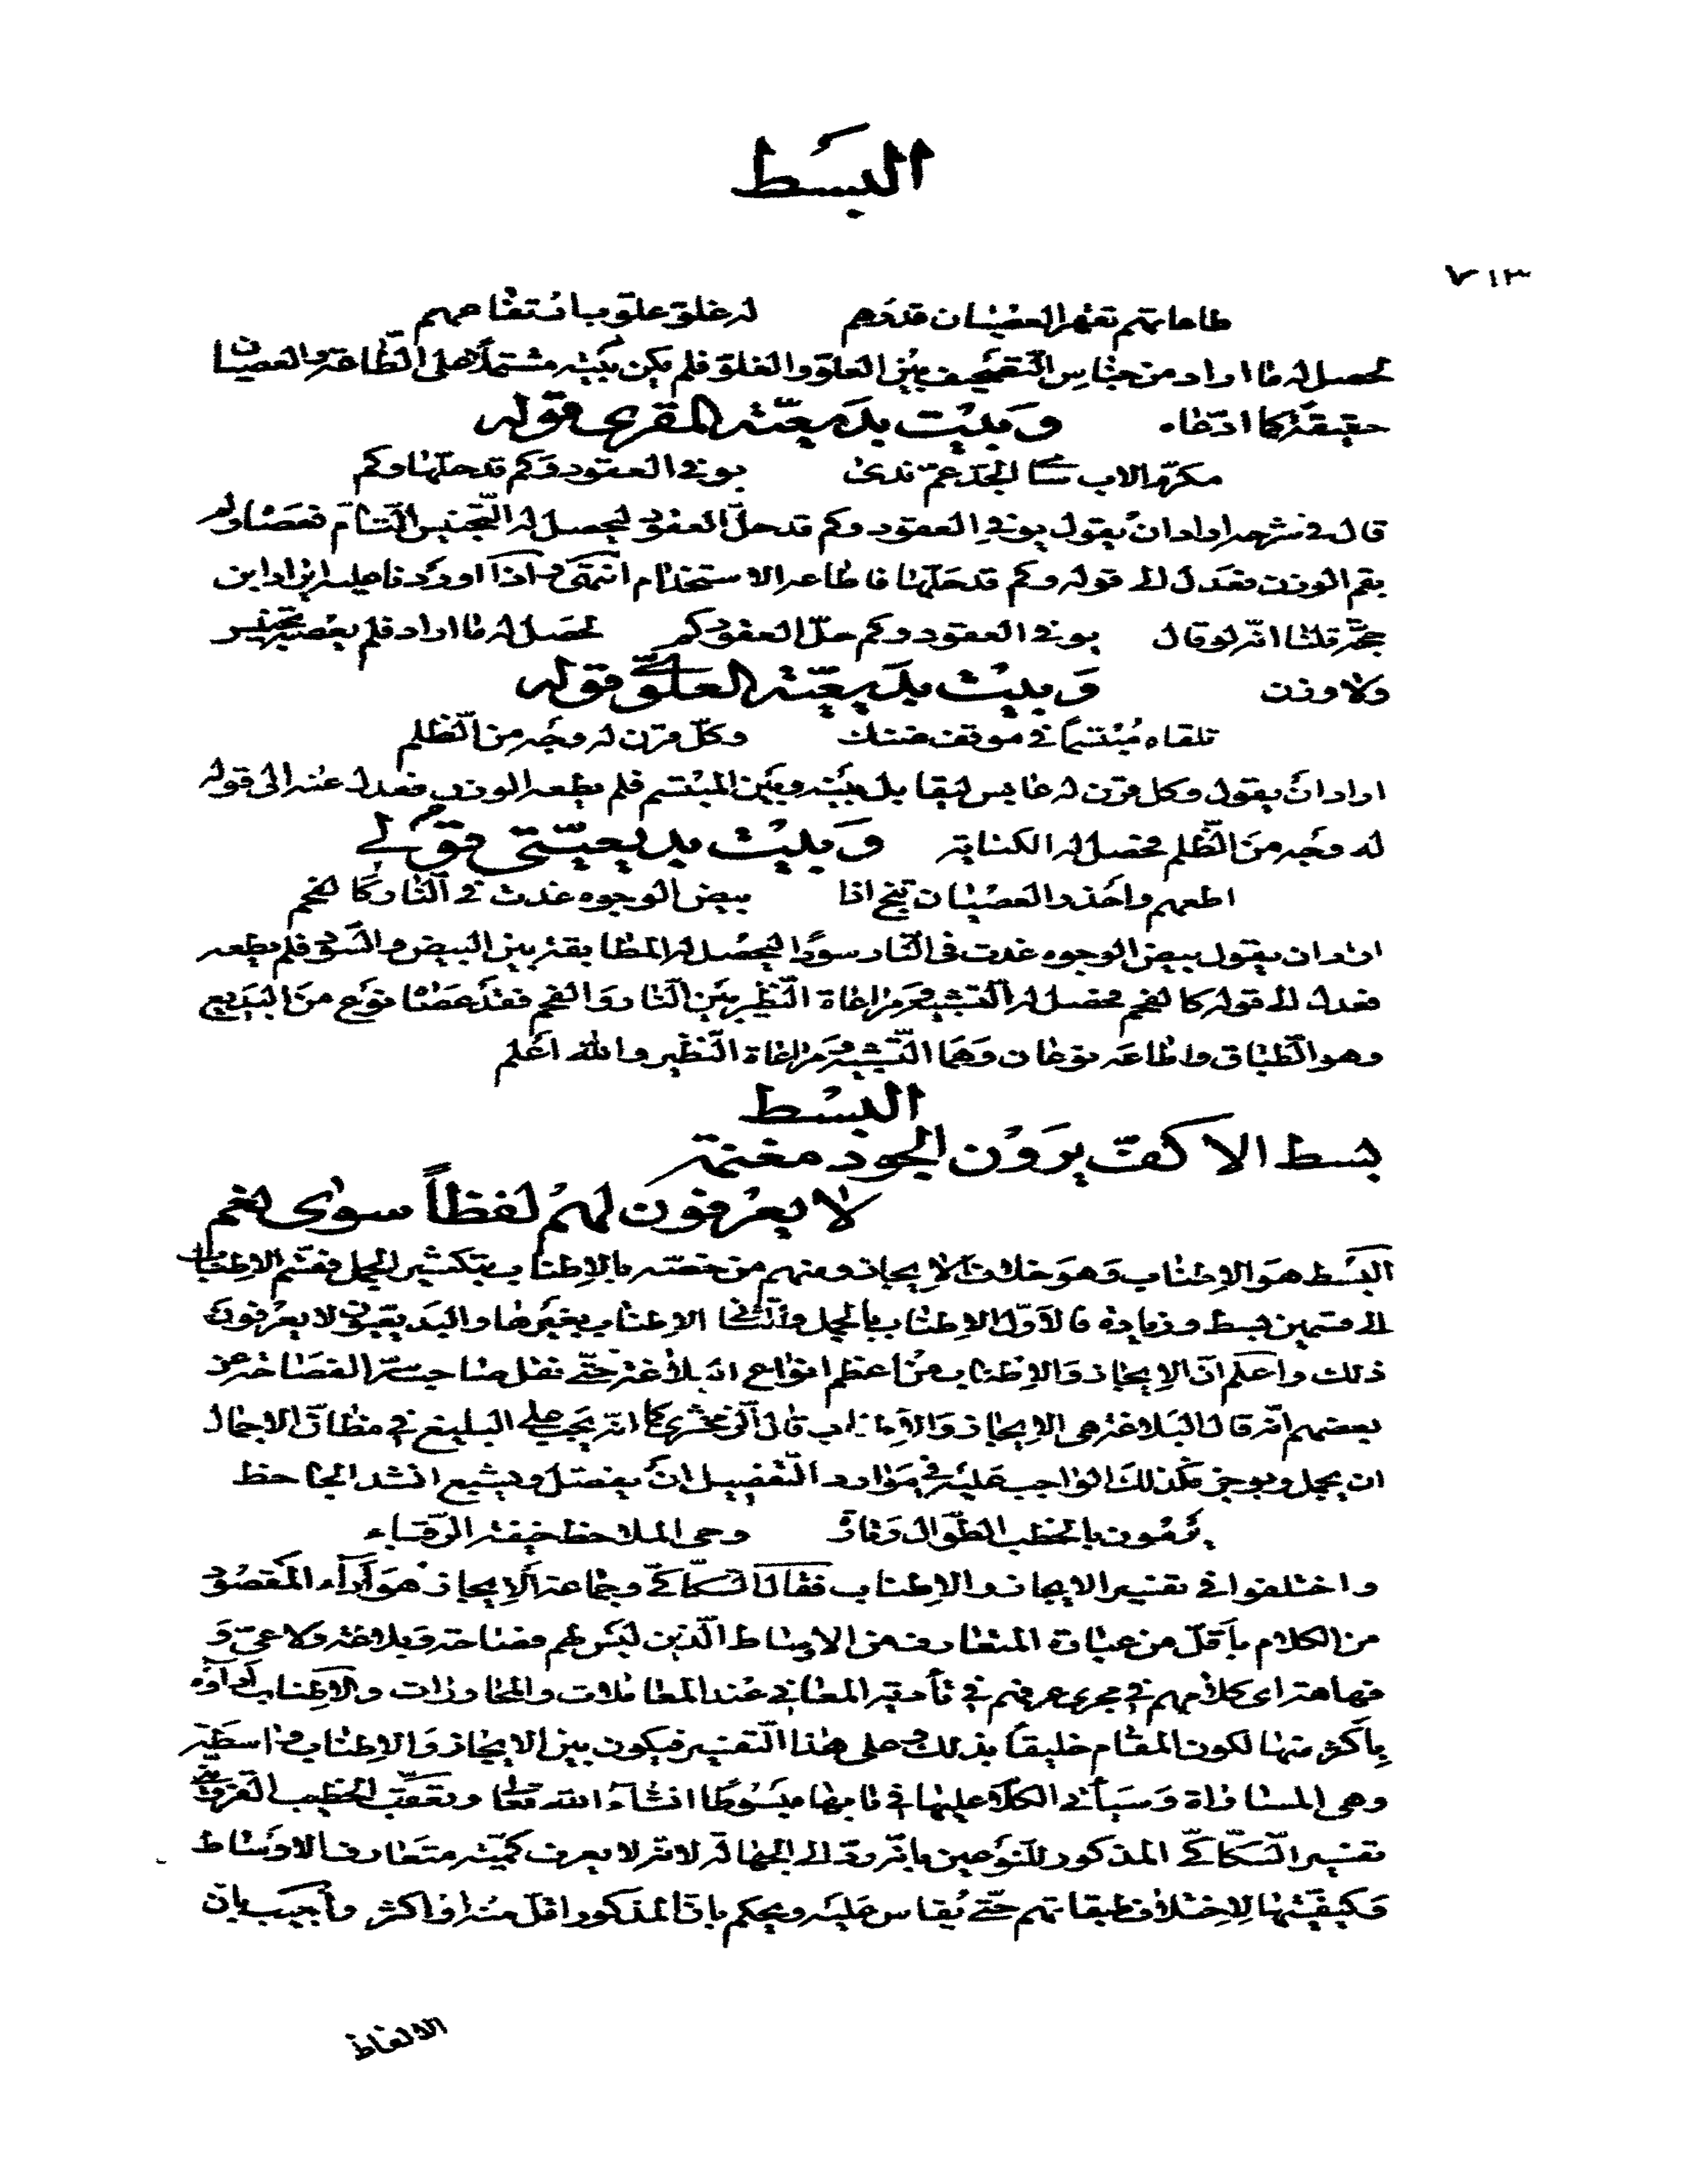 البسط
٧١٣
طاعاتهم تقهر العصيان قدرهم له غلوّ علوّ بانتقامهم
لحصل له ما اراد من جناس التصحيف بين العلوّ والغلوّ فلم يكن بيته مشتملا على الطاعة والعصيان
حقيقة كما ادّعاه وبيت بديعيّة المقرى قوله
مكرّم الاب الجدّ عمّ ندى يوفى العقود وكم قدحلّها وكم
قال فى شرحه اراد ان يقول يوفى العقود وكم قد حلّ العقود ليحصل له التجنيس التّام فعصاه ولم
يقم الوزن فعدل الى قوله وكم قد حلّها فاطاعه الاستخدام انتهى واذا اورد نا عليه ايراد ابن
حجّة قلنا انّه لو قال يوفى العقود وكم حلّ العقود كم لحصل له ما اراد فلم يعصه تجنيس
ولا وزن وبيت بديعيّة العلوىّ قوله
تلقاه مبتسمًا فى موقف ضنك وكلّ قرن له وجه من الظلم
اراد ان يقول وكل قرن له عابس ليقابل بينه وبين المبتسم فلم يطعه الوزن فعدل عنه الى قوله
له وجه من الظلم فحصل له الكناية وبيت بديعيّتى قولى
اطعهم واحذر العصيان تنج اذا بيض الوجوه غدت فى النّار كالفحم
اراد ان يقول بيض الوجوه غدت فى النّار سودًا ليحصل له المطابقة بين البيض والسّود فلم يطعه
فعدل الى قوله كالفحم فحصل له التشبيه ومراعاة النّظير بين النّار والفحم فقد عصانا نوع من البديع
وهو الطّباق واطاعه نوعان وهما التّشبيه ومراعاة النّظير والله اعلم
البسط
بسط الاكفّ يرون الجود مغنمة
لا يعرفون لهم لفظاً سوى نعم
البسط هو الاطناب وهو خلاف الايجاز ومنهم من خصّه بالاطناب بتكثير الجمل فقسّم الاطناب
الى قسمين بسط وزيادة فالاوّل الاطناب بالجمل والثّانى الاطناب بغيرها والبديعيّون لا يعرفون
ذلك واعلم انّ الايجاز والاطناب من اعظم انواع البلاغة حتّى نقل صاحب سرّ الفصاحة عن
بعضهم انّه قال البلاغة هى الايجاز والاطناب قال الزّمخشرى كما انّه يجب على البليغ فى مظانّ الاجمال
ان يجمل ويوجز فكذلك الواجب عليه فى موارد التّفصيل ان يفصّل ويشبع انشد الجاحظ
يرمون بالخطب الطّوال وتارة وحى الملاحظ خيفة الرّقباء
واختلفوا فى تفسير الايجاز والاطناب فقال السّكاكىّ وجماعة الايجاز هو اداء المقصود
من الكلام باقلّ من عبارة المتعارف من الاوساط الّذين ليس لهم فصاحة وبلاغة ولا عىّ و
فهاهة اى كلامهم فى مجرى عرفهم فى تأدية المعانى عند المعاملات والمحاورات والاطناب اداؤه
باكثر منها لكون المقام خليقًا بذلك وعلى هذا التّفسير فيكون بين الايجاز والاطناب واسطة
وهى المساواة وسيأتى الكلام عليها فى بابها مبسوطًا انشاء الله تعالى وتعقّب الخطيب القزوينى
تفسير السّكاكىّ المذكور للنوعين بانّه ردّ الى الجهالة لانه لا يعرف كميّته متعارف الاوساط
وكيفيّتها لاختلاف طبقاتهم حتّى يقاس عليه ويحكم بانّ المذكور اقلّ منه او اكثر واجيب بانّ
الالفاظ